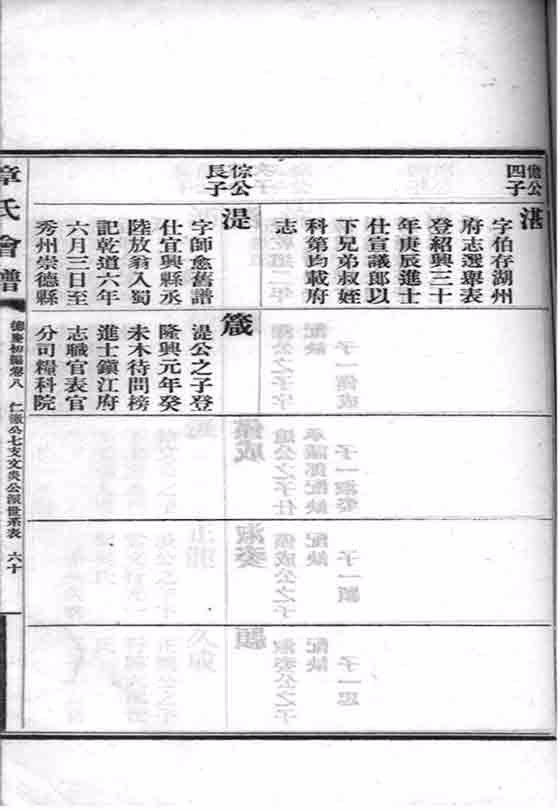 公
四子
湛
字伯存湖州
府志選舉表
登紹興三十
年庚辰進士
仕宣議郎以
下兄弟叔姪
科第均載府
志
倧公
長子
湜
字師愈舊譜
仕宜興縣丞
陸放翁入蜀
記乾道六年
六月三日至
秀州崇德縣
箴
湜公之子登
隆興元年癸
未木待問榜
進士鎮江府
志職官表官
分司糧科院
章氏會譜
德慶初編卷八
仁公七支文炎公派世系表
六十